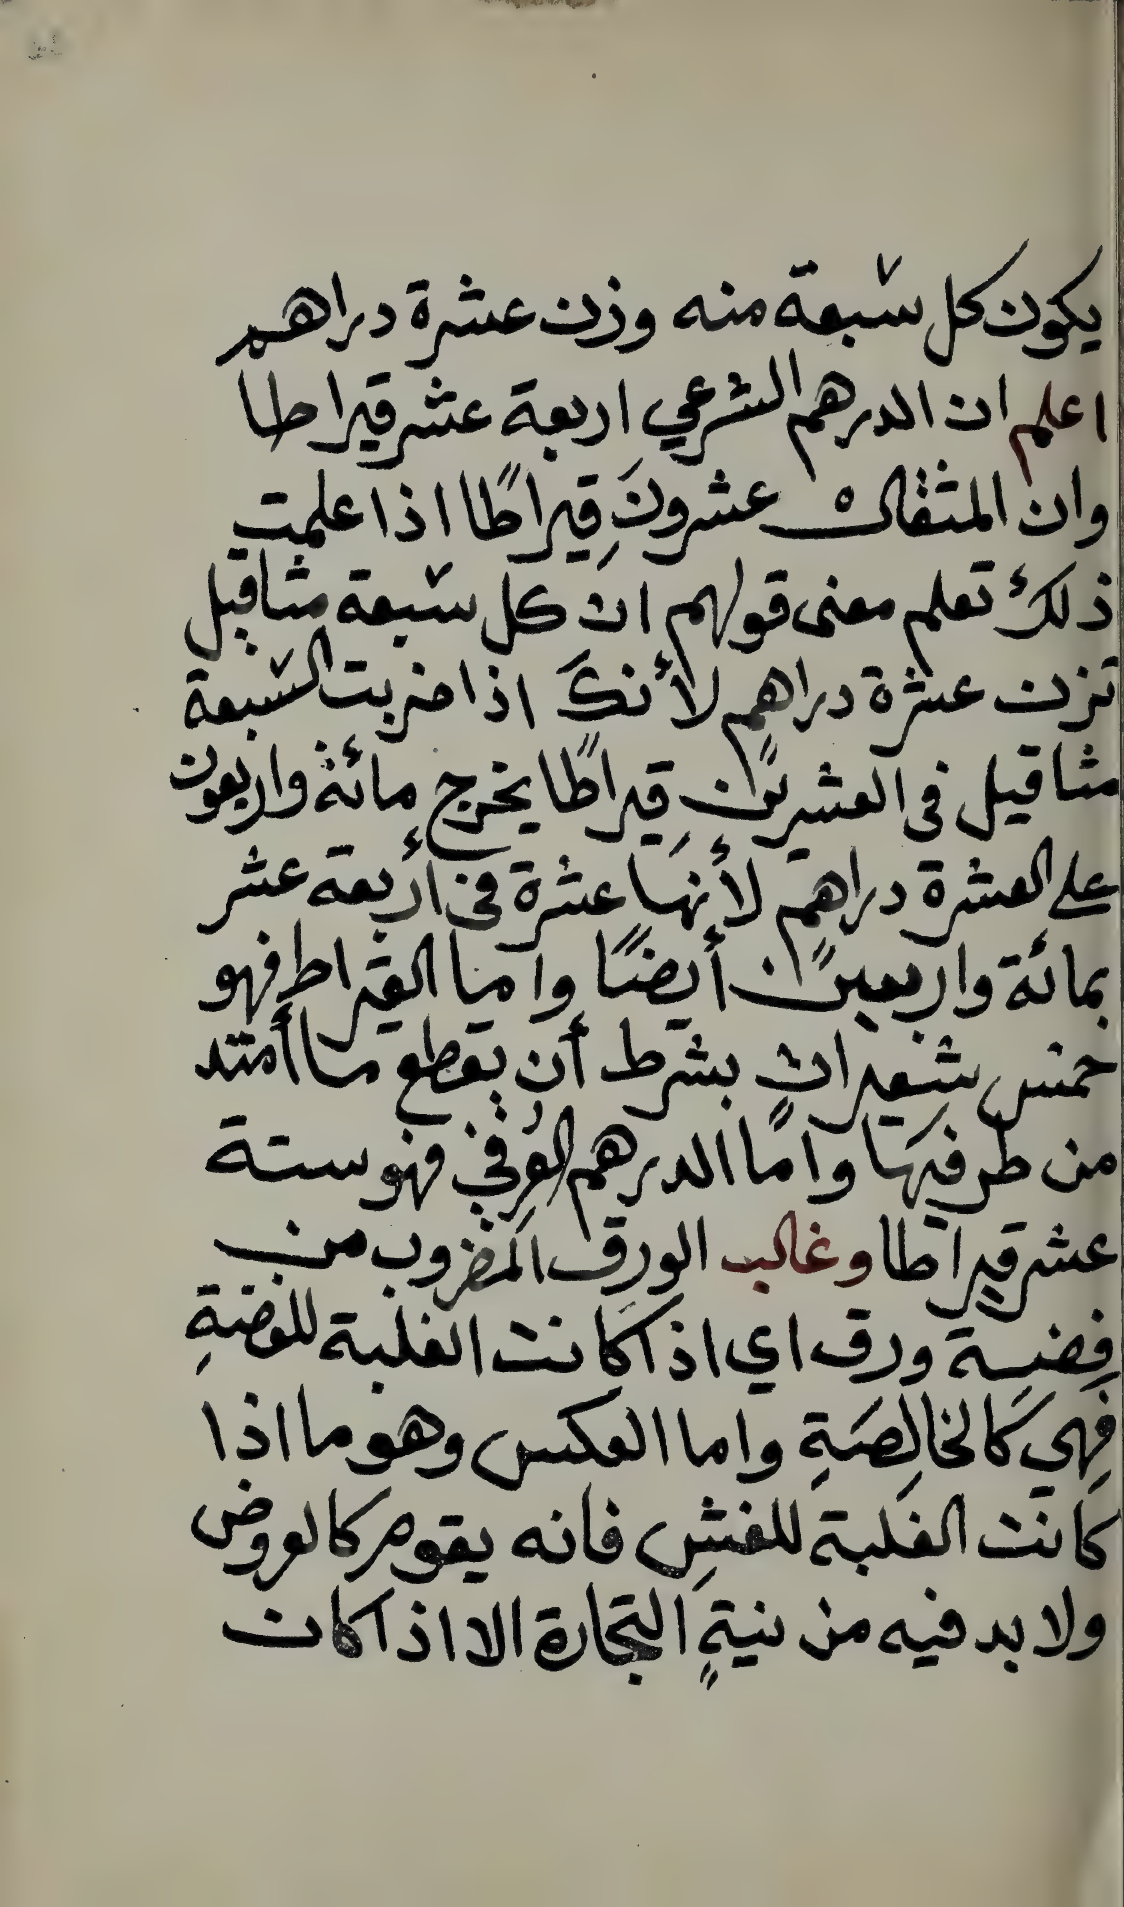 يكون كل سبعة منه وزن عشرة دراهم
اعلم ان الدرهم الشرعي اربعة عشر قيراطا
وان المثقال عشرونَ قِيراطًا اذا علمت
ذلك تعلم معنى قولهم ان كل سبعة مثاقيل
تزن عشرة دراهم لأنكَ اذا ضربت السبعة
مثاقيل في العشرين قيراطًا يخرج مائة واربعون
على العشرة دراهم لأنهَا عشرة في أربعة عشر
بمائة واربعين أيضًا واما القيراط فهو
خمس شعيرات بشرط أن يقطع ما أمتد
من طرفيهَا وامّا الدرهم العُرفي فهو ستة
عشر قيراطا وغالب الورق المضروب من
فِضة ورق اي اذا كانت الغلبة للفضةِ
فهي كَالخالِصَةِ واما العكس وهو ما اذا
كانت الغلبة للغشِ فانه يقوم كالعروض
ولا بد فيه من نيةٍ التجارة الا اذا كان